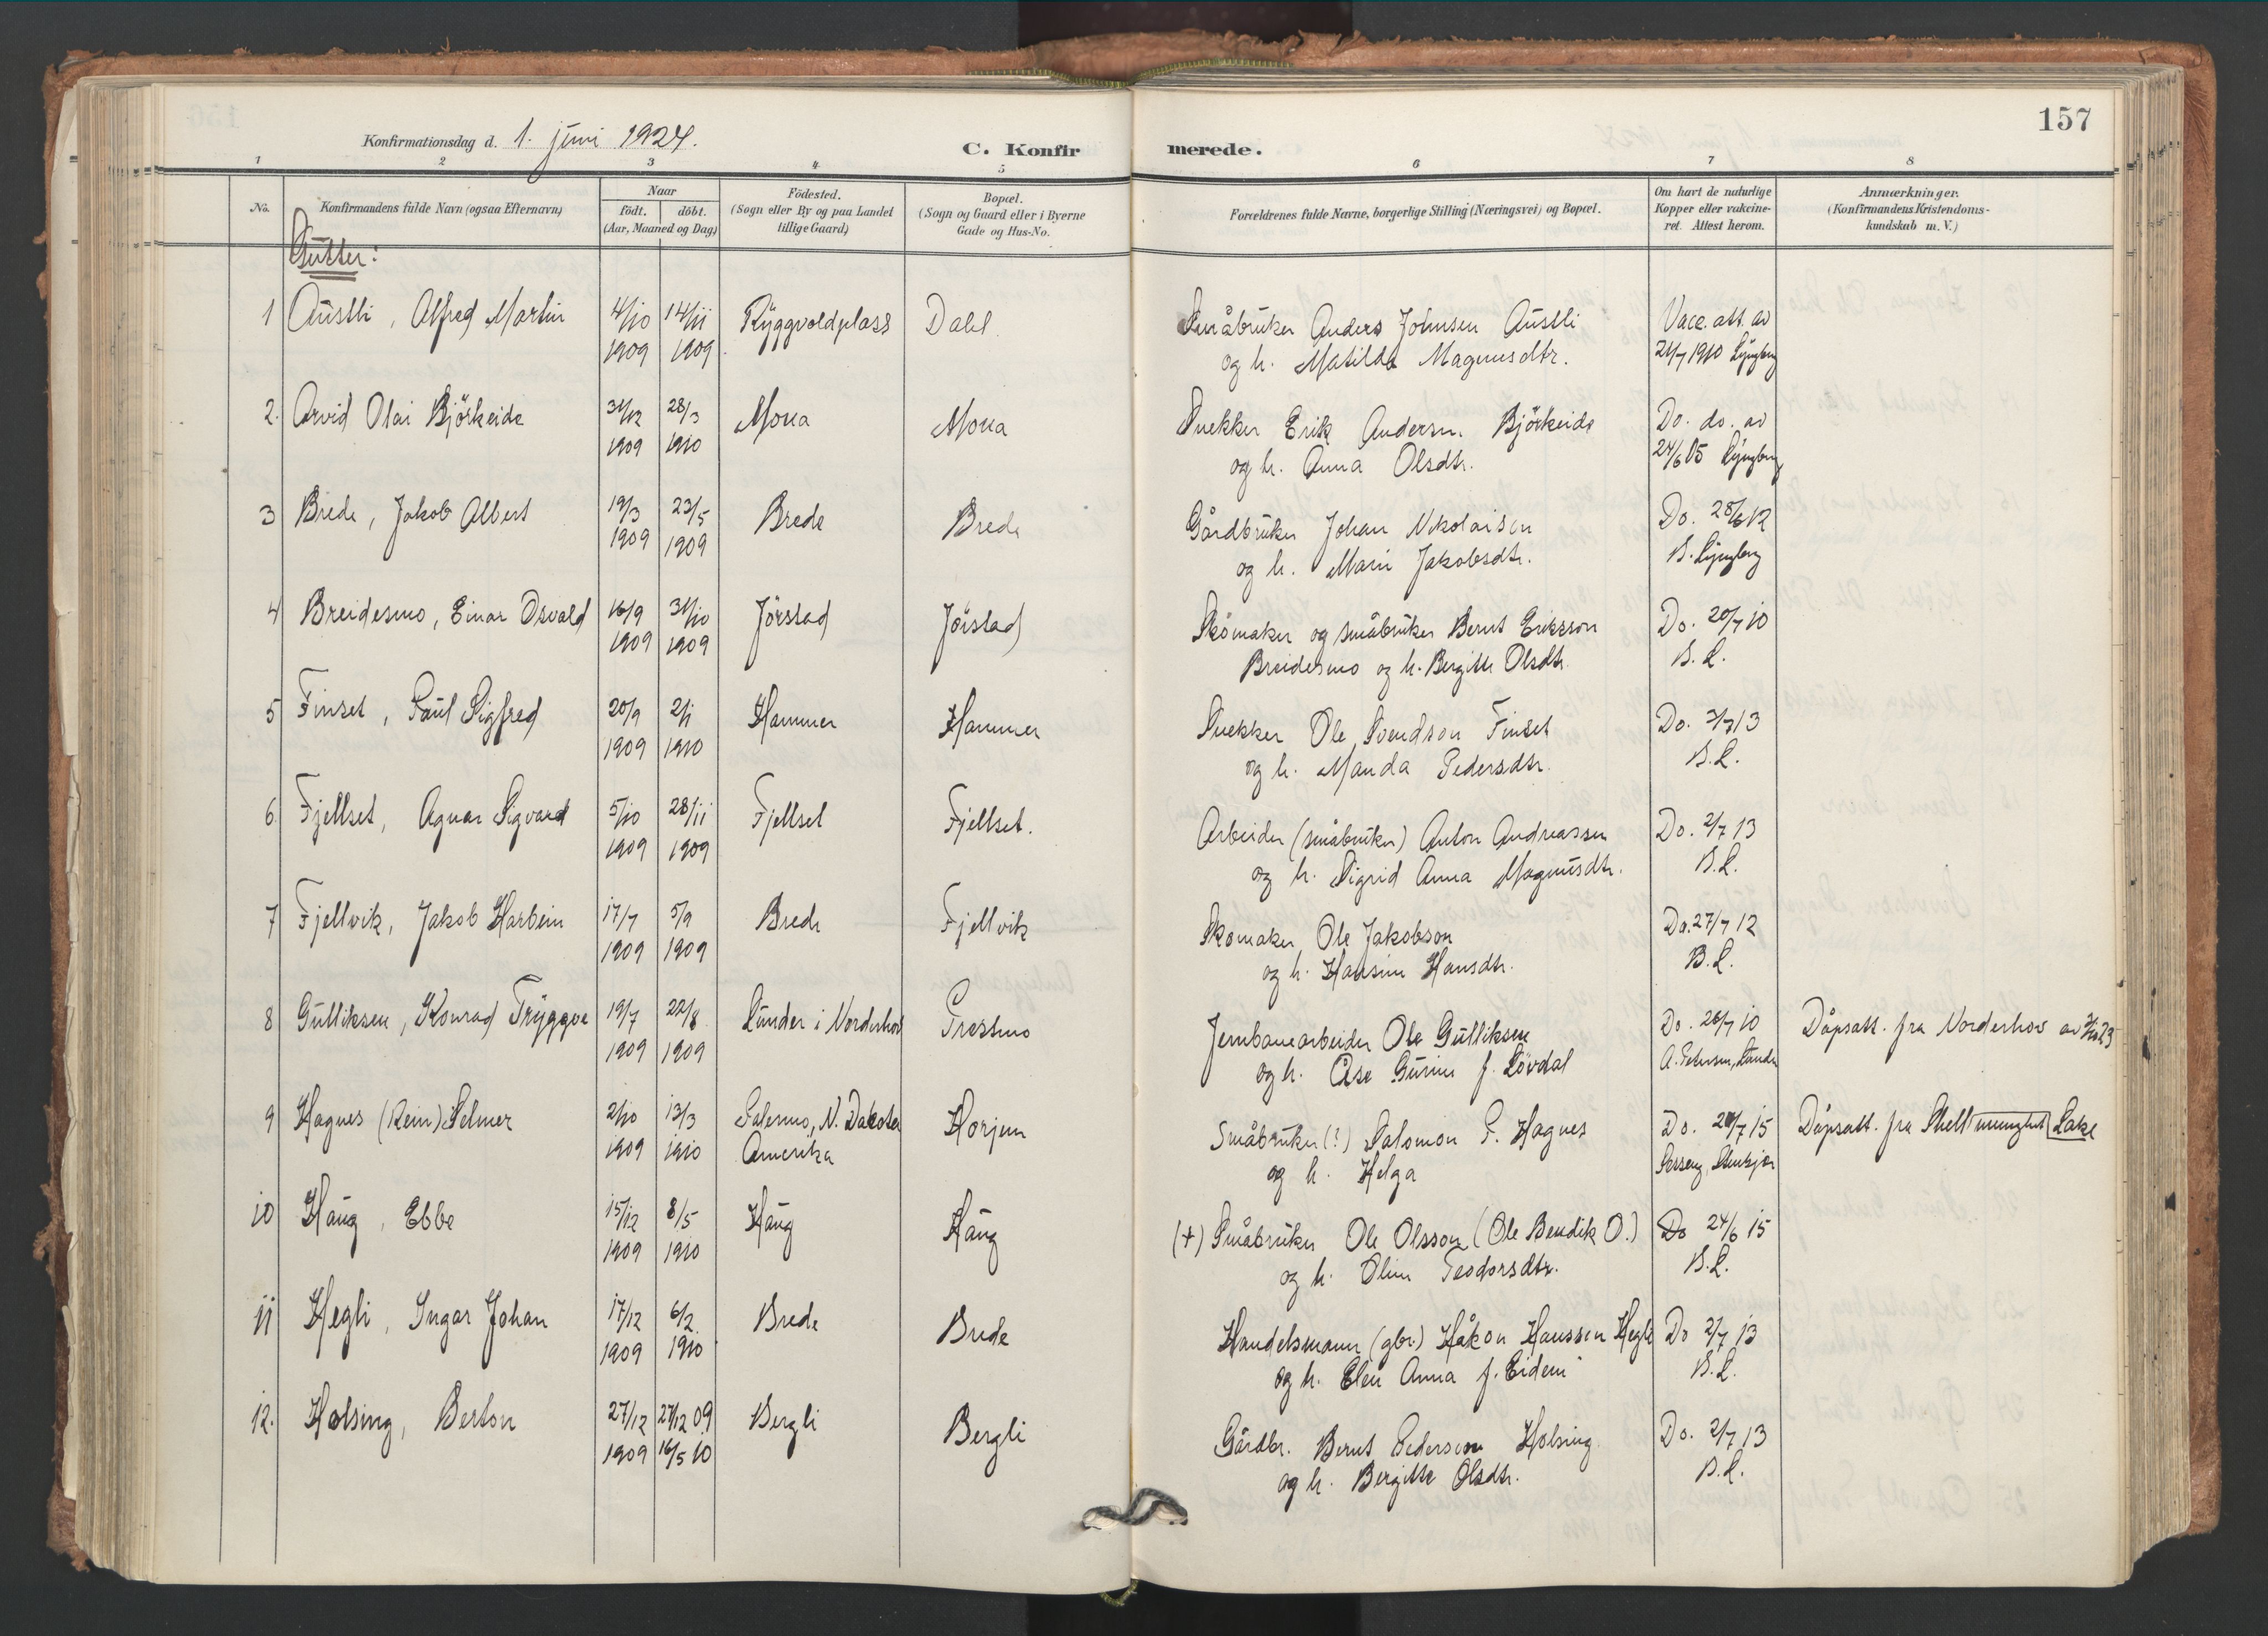 157
Konfirmationsdag d. 1. juni 1924.
C. Konfirmerede.
1 2 3 4 5 6 7 8
No.
Konfirmandens fulde Navn (ogsaa Efternavn)
Naar
födt. döbt.
(Aar, Maaned og Dag)
Födested.
(Sogn eller By og paa Landet
tillige Gaard)
Bopæl.
(Sogn og Gaard eller i Byerne
Gade og Hus-No.
Forældrenes fulde Navne, borgerlige Stilling (Næringsvei) og Bopæl.
Om havt de naturlige
Kopper eller vakcine-
ret. Attest herom.
Anmærkninger.
(Konfirmandens Kristendoms-
kundskab m. V.)
Gutter:
1 Austli, Alfred Martin 4/10 14/11 Ryggvoldplass Dahl. Småbruker Anders Johnsen Austli Vacc. att. av
1909 1909 og h. Matilde Magnusdtr. 21/7 1910 Lyngberg
2. Arvid Olai Björkeide 31/12 28/3 Mona Mona Snekker Erik Andersen Björkeide Do. do. av
1909 1910 og h. Anna Olsdtr. 24/6 05 Lyngberg
3 Brede, Jakob Albert 19/3 23/5 Brede Brede Gårdbruker Johan Nikolaisen Do. 28/6 12
1909 1909 og h. Marie Jakobsdtr. B. Lyngberg
4 Breidesmo, Einar Osvald 16/9 31/10 Jörstad Jörstad Skomaker og småbruker Bernt Eriksson Do. 20/7 10
1909 1909 Breidesmo og h. Bergitte Olsdtr. B. L.
5 Finset, Paul Sigfred 20/9 2/1 Hammer Hammer Snekker Ole Svendson Finset Do. 2/7 13
1909 1910 og h. Manda Pedersdtr. B. L.
6 Fjellset, Agnar Sigvard 5/10 28/11 Fjellset Fjellset. Arbeider (småbruker) Anton Andreassen Do. 2/7 13
1909 1909 og h. Sigrid Anna Magnusdtr. B. L.
7 Fjellvik, Jakob Harbein 17/7 5/9 Brede Fjellvik Skomaker Ole Jakobson Do. 27/7 12
1909 1909 og h. Hansine Hansdtr. B. L.
8 Gulliksen, Konrad Tryggve 19/7 22/8 Lunder i Norderhov Prestmo Jernbanearbeider Ole Gulliksen Do. 26/7 10 Dåpsatt. fra Norderhov av
1909 1909 og h. Åse Gurine f. Lövdal A. Petersen, Lunder
9 Hagnes (Rein) Selmer 2/10 13/3 Palermo, N. Dakota Horjem Småbruker (?) Salomon P. Hagnes Do. 20/7 15 Dåpsatt. fra Lake
1909 1910 Amerika og h. Helga Steinkjær
10 Haug, Ebbe 15/12 8/5 Haug Haug (+) Småbruker Ole Olsson (Ole Bendik O.) Do 24/6 15
1909 1910 og h. Oline Teodorsdtr. B. L.
11 Hegli, Ingar Johan 17/12 6/2 Brede Brede Handelsmann (gbr.) Håkon Hanssen Hegli Do 2/7 13
1909 1910 og h. Elen Anna f. Eidem B. L.
12. Holsing, Berton 27/12 27/12 09 Bergli Bergli Gårdbr. Bernt Pedersen Holsing Do. 2/7 13
1909 16/5 10 og h. Bergitte Olsdtr. B. L.